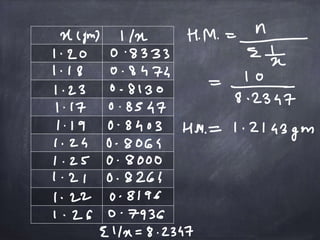 x (gm) 1/x
1.20 0.8333
1.18 0.8474
1.23 0.8130
1.17 0.8547
1.19 0.8403
1.24 0.8064
1.25 0.8000
1.21 0.8264
1.22 0.8196
1.26 0.7936
Σ1/x = 8.2347
H.M. = n / Σ 1/x
= 10 / 8.2347
H.M. = 1.2143 gm